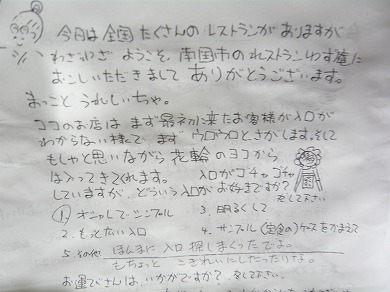 今日は全国たくさんのレストランがありますが
わざわざ ようこそ、南国市のれストランわす庵に
おこしいただきまして ありがとうございます。
まっこと うれしいちゃ。
ココのお店は まず 最初に来たお客様が入口が
わからない様で まず ウロウロと さがします。そして
もしやと思いながら 花輪のヨコから
は入ってきてくれます。 入口がゴチャゴチャ
していますが、どういう入口が お好きですか?
をしで下さい
1. オシャレで・シンプル 3. 明るくして
2. もっとない入口 4. サンプル(定食の)ケースをかまえて
5. その他 ほんまに 入口 探しまくったでよ。
もちょっと こぎれいにしたったりな。
お運びさんは、いかがですか?